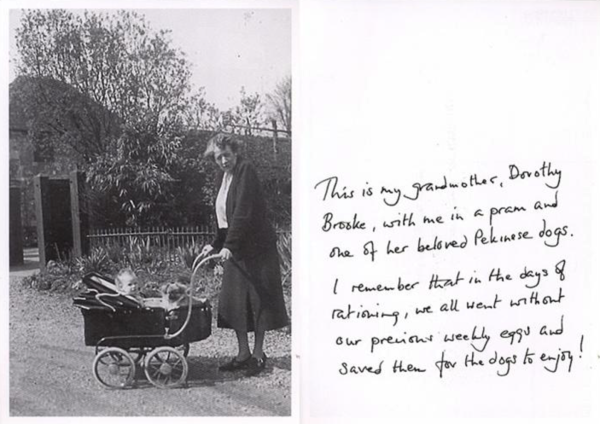 This is my grandmother, Dorothy
Brooke, with me in a pram and
one of her beloved Pekinese dogs.
I remember that in the days of
rationing, we all went without
our precious weekly eggs and
saved them for the dogs to enjoy!